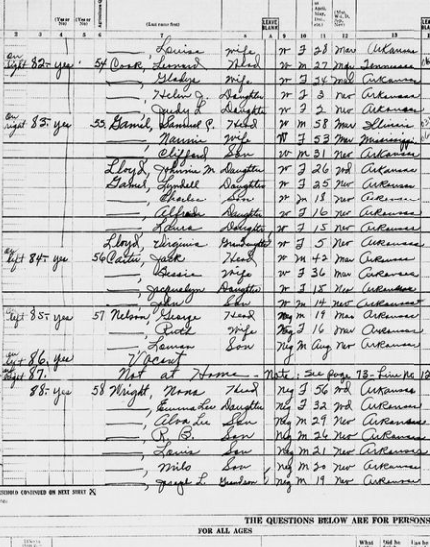 2 3 4 5 6 7 8 9 10 11 12 13
LEAVE BLANK
Louise Wife W F 28 Mar Arkansas
on right 82- yes 54 Cook, Leonard Head W M 27 Mar Tennessee
Gladys Wife W F 24 Mar Arkansas
Helen J. Daughter W F 3 Nev Arkansas
Judy L. Daughter W F 2 Nev Arkansas
on right 83- yes 55 Gamil, Samuel C. Head W M 58 Mar Illinois
Nannie Wife W F 53 Mar Mississippi
Clifford Son W M 31 Nev Arkansas
Lloyd, Johnnie M Daughter W F 26 Wd Arkansas
Gamil, Lyndell Daughter W F 25 Nev Arkansas
Charles Son W M 18 Nev Arkansas
Alfreda Daughter W F 16 Nev Arkansas
Laura Daughter W F 15 Nev Arkansas
Lloyd, Virginia Grandaughter W F 5 Nev Arkansas
on left 84- yes 56 Carter, Jack Head W M 42 Mar Arkansas
Bessie Wife W F 36 Mar Arkansas
Jacquelyn Daughter W F 18 Nev Arkansas
John Son W M 14 Nev Arkansas
on left 85- yes 57 Nelson, George Head Neg M 19 Mar Arkansas
Wife Neg F 16 Mar Arkansas
Son Neg M Aug Nev Arkansas
on left 86. yes Vacant
87. Not at Home - Note: See page 73 - Line no 12
88- yes 58 Wright, Nona Head Neg F 56 Wd Arkansas
Emma Lee Daughter Neg F 32 Wd Arkansas
Alva Lee Son Neg M 29 Nev Arkansas
R. B. Son Neg M 26 Nev Arkansas
Louis Son Neg M 21 Nev Arkansas
Milo Son Neg M 20 Nev Arkansas
Joseph L. Grandson Neg M 19 Nev Arkansas
HOUSEHOLD CONTINUED ON NEXT SHEET
THE QUESTIONS BELOW ARE FOR PERSONS
FOR ALL AGES